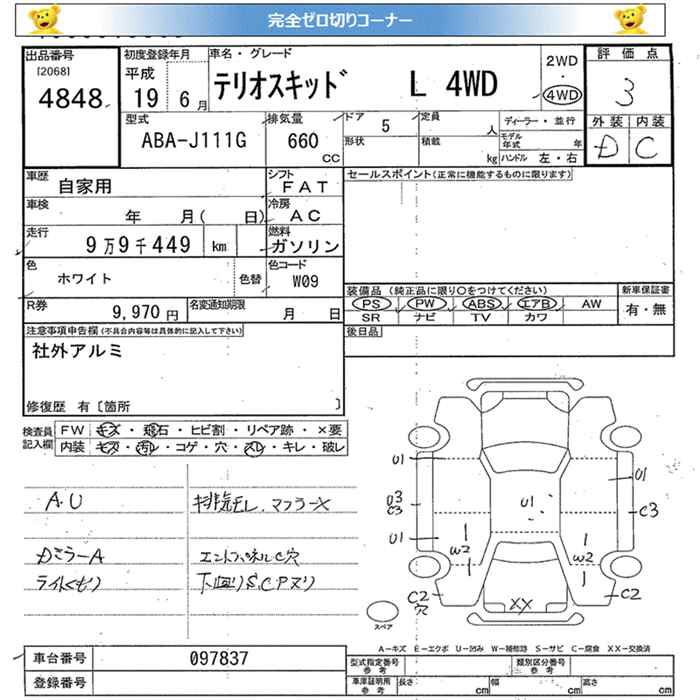 完全ゼロ切りコーナー
出品番号 初度登録年月 車名・グレード 2WD 評価点
[2068] 平成 テリオスキッド L 4WD ・ 3
4848 19 6月 4WD 外装 内装
型式 排気量 ドア 5 定員 人 ディーラー・並行 D C
ABA-J111G 660 CC 形状 積載 kg モデル年式 年
ハンドル 左・右
車歴 自家用 シフト FAT セールスポイント(正常に機能するものに限ります)
車検 年 月( 日) 冷房 AC
走行 9万9千449 km 燃料 ガソリン
色 ホワイト 色替 色コード W09
装備品 (純正品に限り○をつけてください) 新車保証書
R券 9,970円 名変通知期限 月 日 PS PW ABS エアB AW 有・無
SR ナビ TV カワ
注意事項申告欄(不具合内容等は具体的に記入して下さい) 後日品
社外アルミ
修復歴 有〔箇所 〕
検査員記入欄 FW キズ・飛石・ヒビ割・リペア跡・×要
内装 キズ・汚レ・コゲ・穴・スレ・キレ・破レ
U1 U1
A.U 排気モレ.マフラーX U3 C3 U1 C3
U1 W2 W2
Dミラー A C穴
ライトくもり 下回りS.C.Pヌリ C2 穴 XX C2
スペア
A-キズ E-エクボ U-凹み W-補修跡 S-サビ C-腐食 XX-交換済
車台番号 097837 型式指定番号 参考 類別区分番号 参考
登録番号 車庫証明用 参考 長さ cm 幅 cm 高さ cm